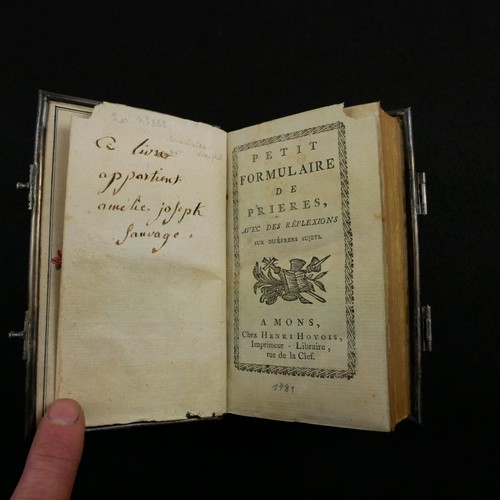 Ce livre
appartient
amélie joseph
Sauvage.
PETIT
FORMULAIRE
DE
PRIERES,
AVEC DES RÉFLEXIONS
SUR DIFÉRENS SUJETS.
A MONS,
Chez HENRI HOYOIS,
Imprimeur - Libraire,
rue de la Clef.
1781